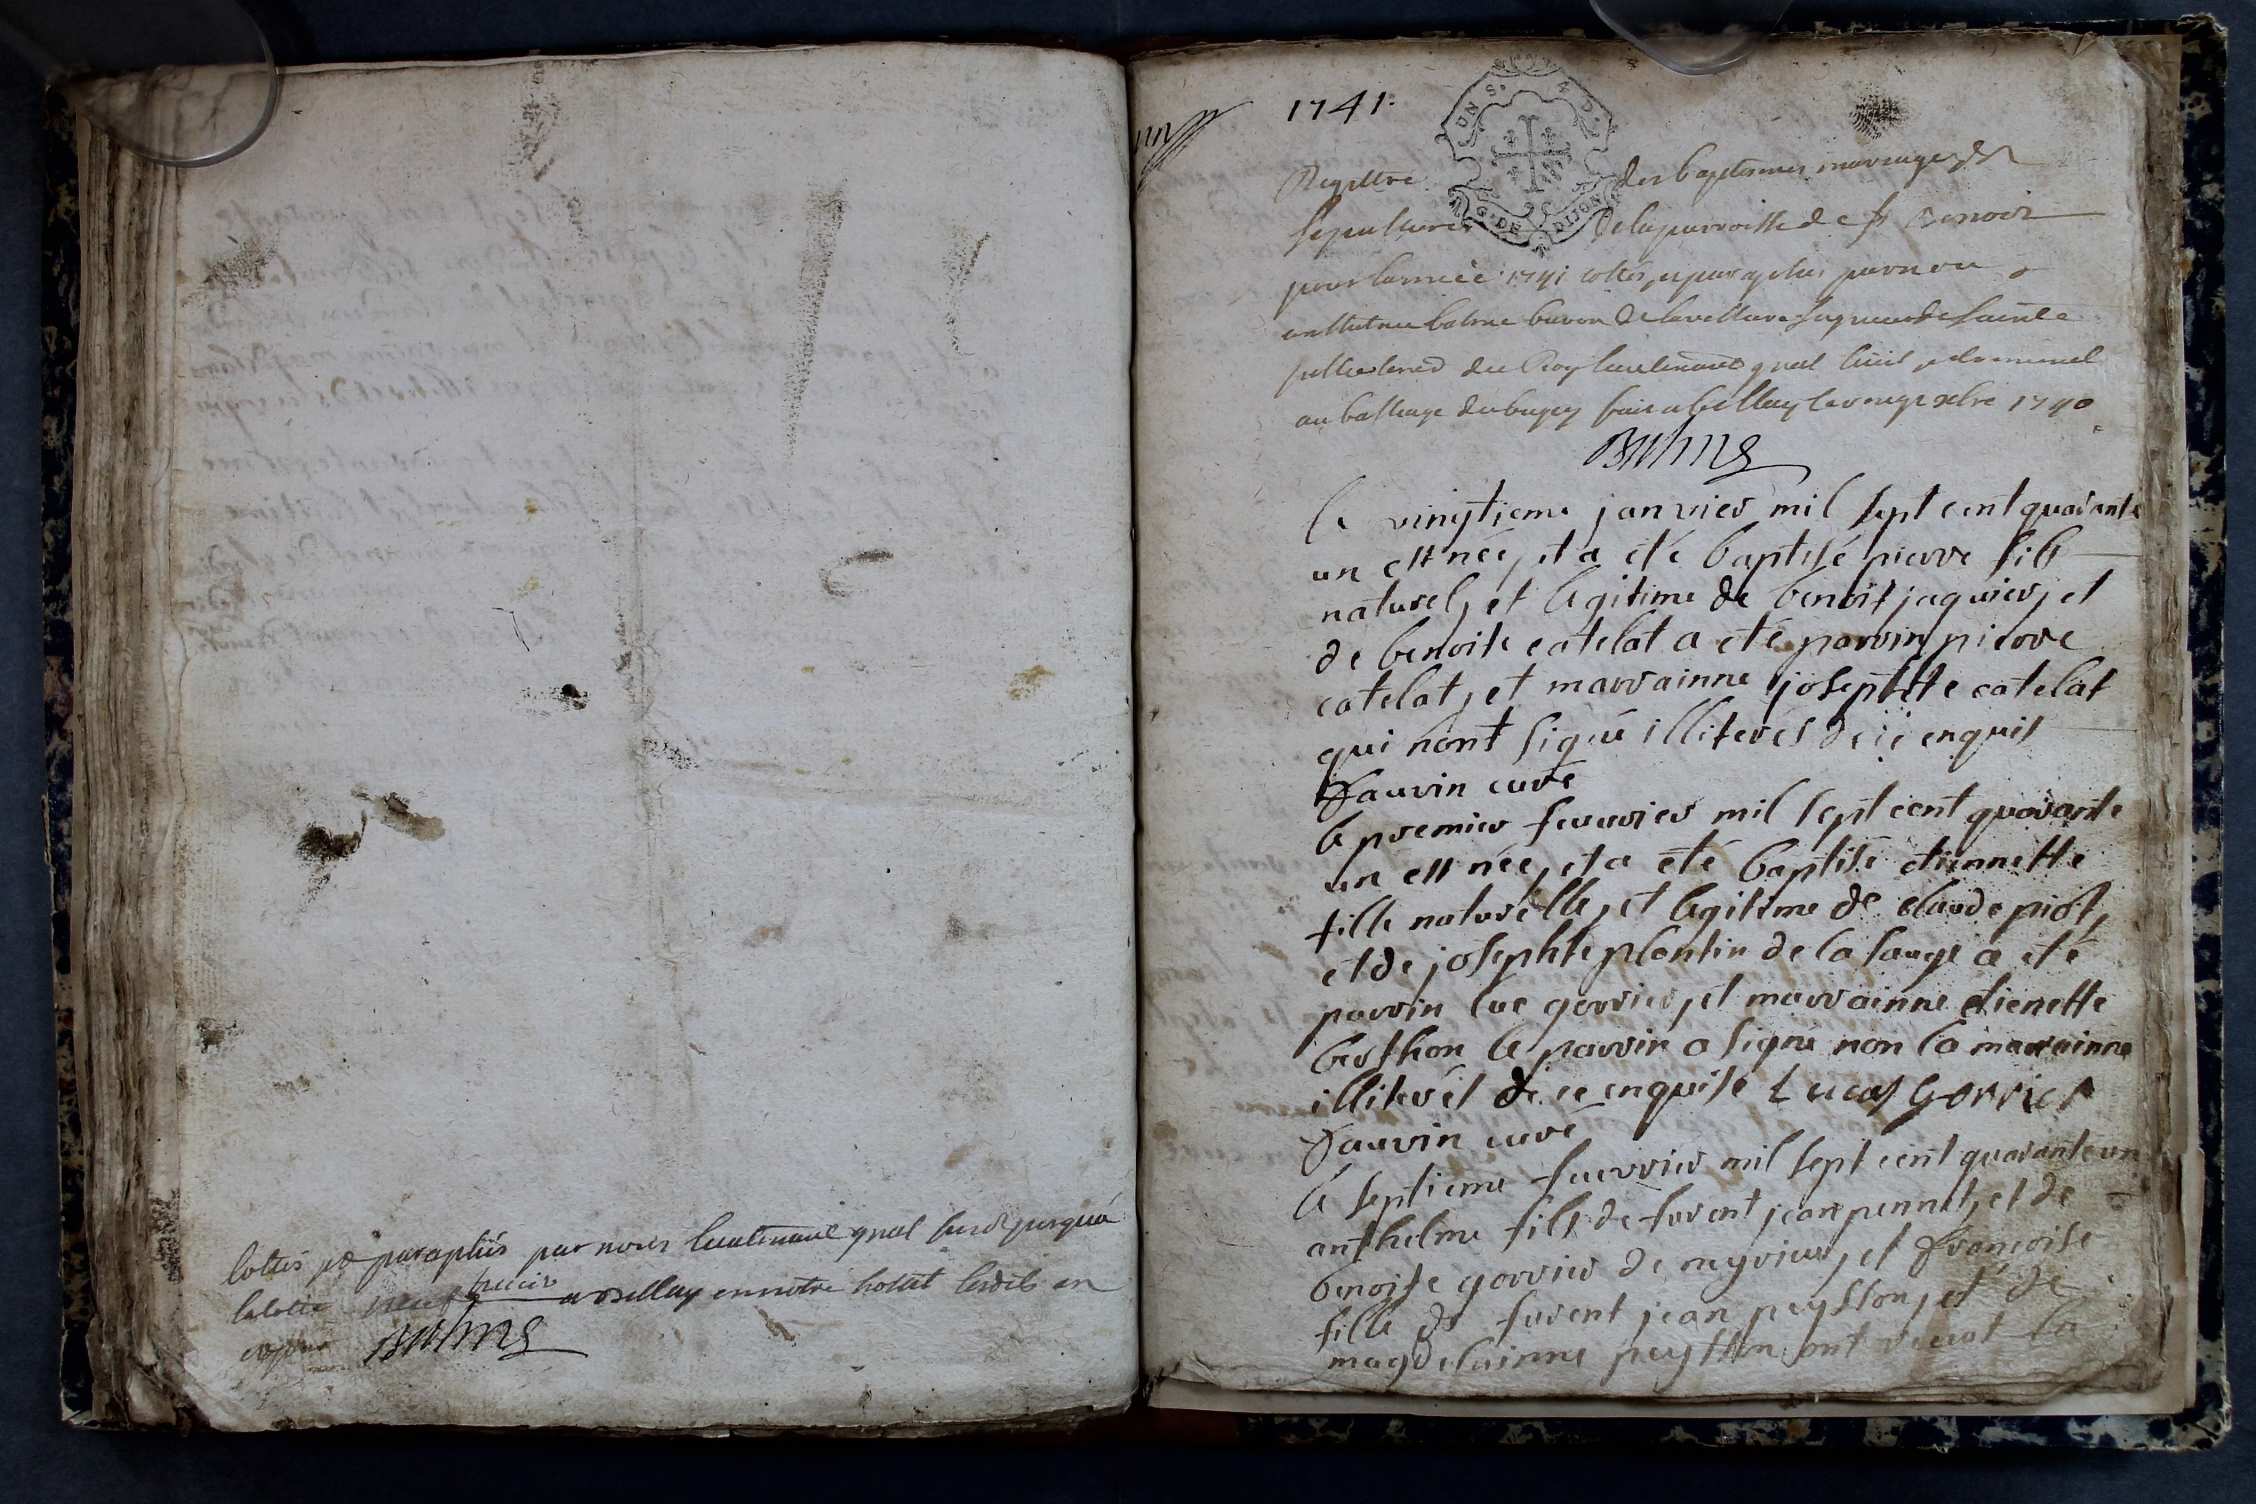 cottés et paraphés par nous lieutenant gnal susd jusqua
la cotte neuf a Belley en notre hotel lesdits an
et jour Balme
un
1741.
UN S.
G. DE DIJON
Registre des baptemes mariages et
sepultures de la parroisse de st Benoit
pour lannée 1741 cottés et paraphés par nous
balme baron de seigneur de sainte
du Roy lieutenant gnal civil et criminel
au bailliage du bugey fait a belley le xbre 1740
Balme
le vingtieme janvier mil sept cent quarante
un est née, et a eté baptisé pierre fils
naturel, et legitime de benoit jaquier, et
de benoite catelat a eté parrin pierre
catelat, et marrainne josephte catelat
qui nont signé illiterés de ce enquis
Fauvin curé
le premier feuvrier mil sept cent quarante
un est née, et a eté baptisé etiennette
fille naturelle, et legitime de claude piot,
et de josephte plantin de la sauge a eté
parrin luc gorrier, et marrainne etienette
berthon le parrin a signé non la marrainne
illiterés de ce enquise Lucas Gorrier
Fauvin curé
le septieme feuvrier mil sept cent quarante un
anthelme fils de furent jean pennet, et de
benoite gorrier de meyrieu, et françoise
fille de furent jean peysson, et de
magdelainne peysson ont recut la